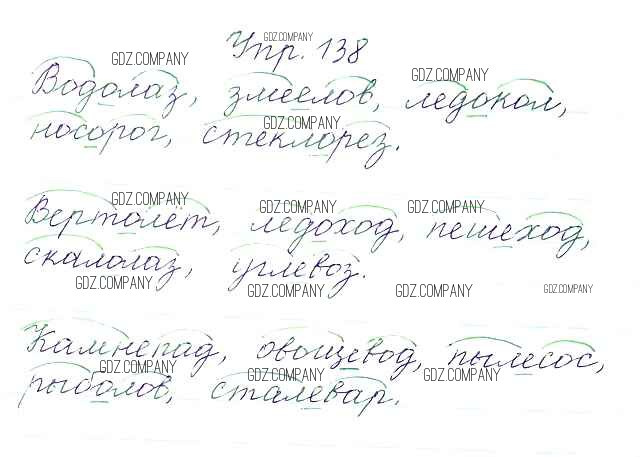 Упр. 138
GDZ.COMPANY
GDZ.COMPANY
GDZ.COMPANY
Водолаз, змеелов, ледокол,
GDZ.COMPANY
носорог, стеклорез.
GDZ.COMPANY GDZ.COMPANY GDZ.COMPANY
Вертолёт, ледоход, пешеход,
скалолаз, углевоз.
GDZ.COMPANY GDZ.COMPANY GDZ.COMPANY GDZ.COMPANY
Камнепад, овощевод, пылесос,
GDZ.COMPANY GDZ.COMPANY GDZ.COMPANY
рыболов, сталевар.